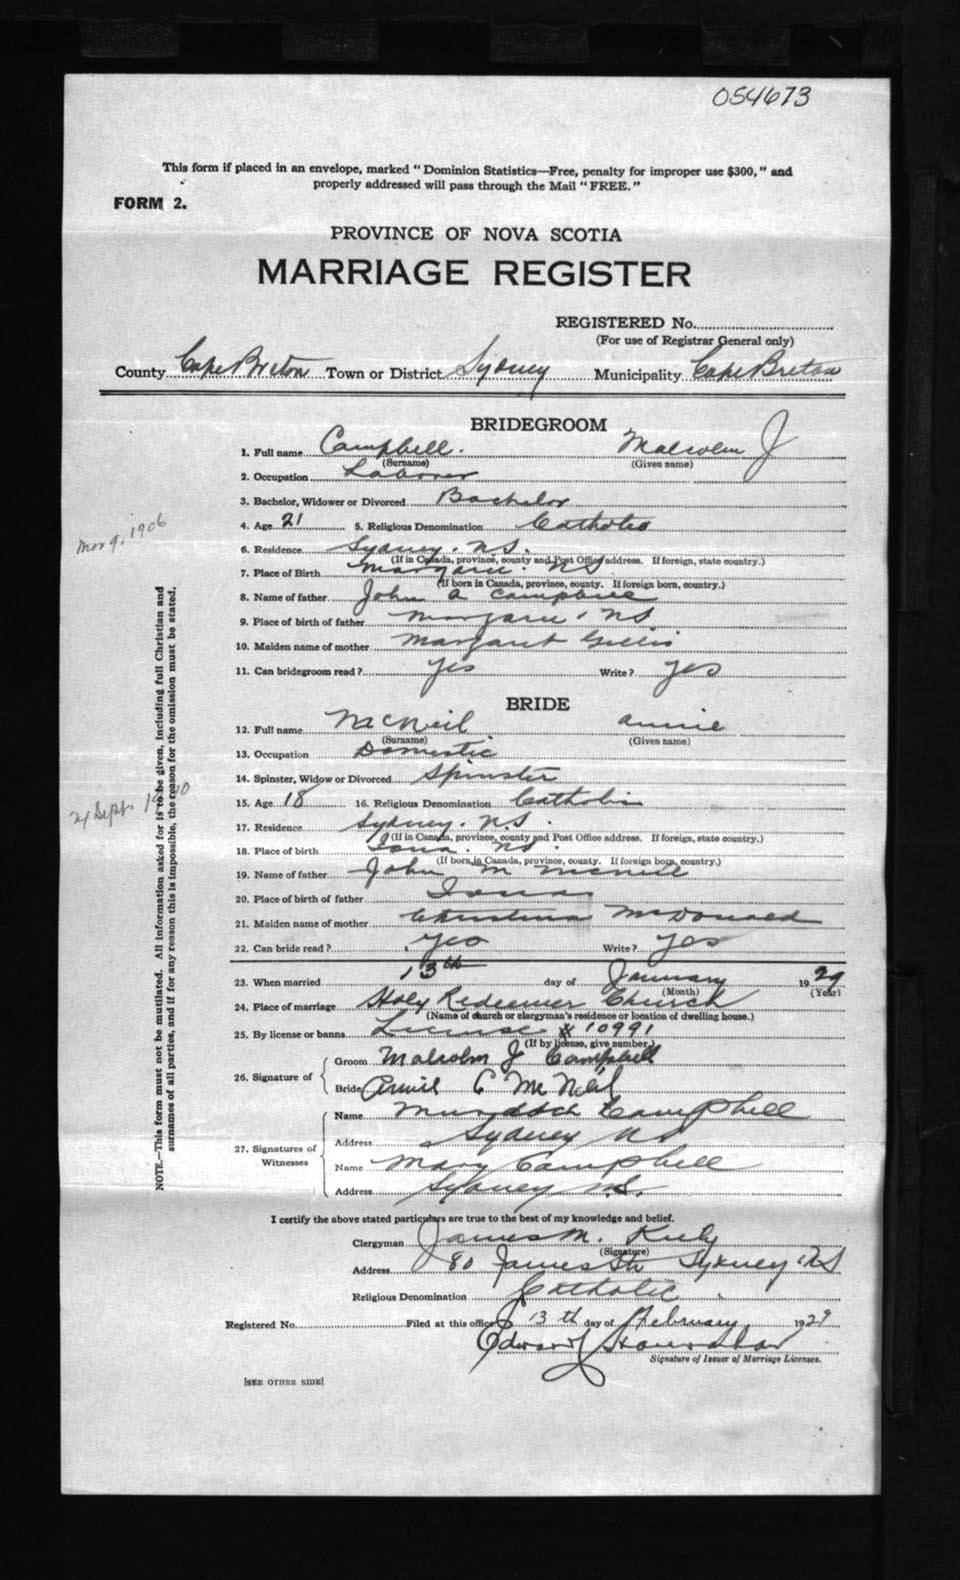 054673
This form if placed in an envelope, marked "Dominion Statistics—Free, penalty for improper use $300," and
properly addressed will pass through the Mail "FREE."
FORM 2.
PROVINCE OF NOVA SCOTIA
MARRIAGE REGISTER
REGISTERED No.
(For use of Registrar General only)
County Cape Breton Town or District Sydney Municipality Cape Breton
BRIDEGROOM
1. Full name Campbell. Malcolm J
(Surname) (Given name)
2. Occupation Laborer
3. Bachelor, Widower or Divorced Bachelor
4. Age 21 5. Religious Denomination Catholic
Mar 9, 1906
6. Residence Sydney. N.S.
(If in Canada, province, county and Post Office address. If foreign, state country.)
7. Place of Birth Margaree. N.S.
(If born in Canada, province, county. If foreign born, country.)
8. Name of father John A Campbell
9. Place of birth of father Margaree, N.S.
10. Maiden name of mother Margaret Gillis
11. Can bridegroom read? Yes Write? Yes
BRIDE
12. Full name MacNeil Annie
(Surname) (Given name)
13. Occupation Domestic
14. Spinster, Widow or Divorced Spinster
15. Age 18 16. Religious Denomination Catholic
24 Sept. 1910
17. Residence Sydney. N.S.
(If in Canada, province, county and Post Office address. If foreign, state country.)
18. Place of birth Iona. N.S.
(If born in Canada, province, county. If foreign born, country.)
19. Name of father John M McNeil
20. Place of birth of father Iona
21. Maiden name of mother Christina McDonald
22. Can bride read? Yes Write? Yes
23. When married 13th day of January 1929
(Month) (Year)
24. Place of marriage Holy Redeemer Church
(Name of church or clergyman's residence or location of dwelling house.)
25. By license or banns License # 10991
(If by license, give number.)
26. Signature of Groom Malcolm J Campbell
Bride Annie C McNeil
27. Signatures of Witnesses Name Murdoch Campbell
Address Sydney NS
Name Mary Campbell
Address Sydney N.S.
I certify the above stated particulars are true to the best of my knowledge and belief.
Clergyman James M. Kiely
(Signature)
Address 80 James St Sydney N.S
Religious Denomination Catholic
Registered No. Filed at this office 13th day of February 1929
Edward
Signature of Issuer of Marriage Licenses.
[SEE OTHER SIDE]
NOTE.—This form must not be mutilated. All information asked for is to be given, including full Christian and
surnames of all parties, and if for any reason this is impossible, the reason for the omission must be stated.